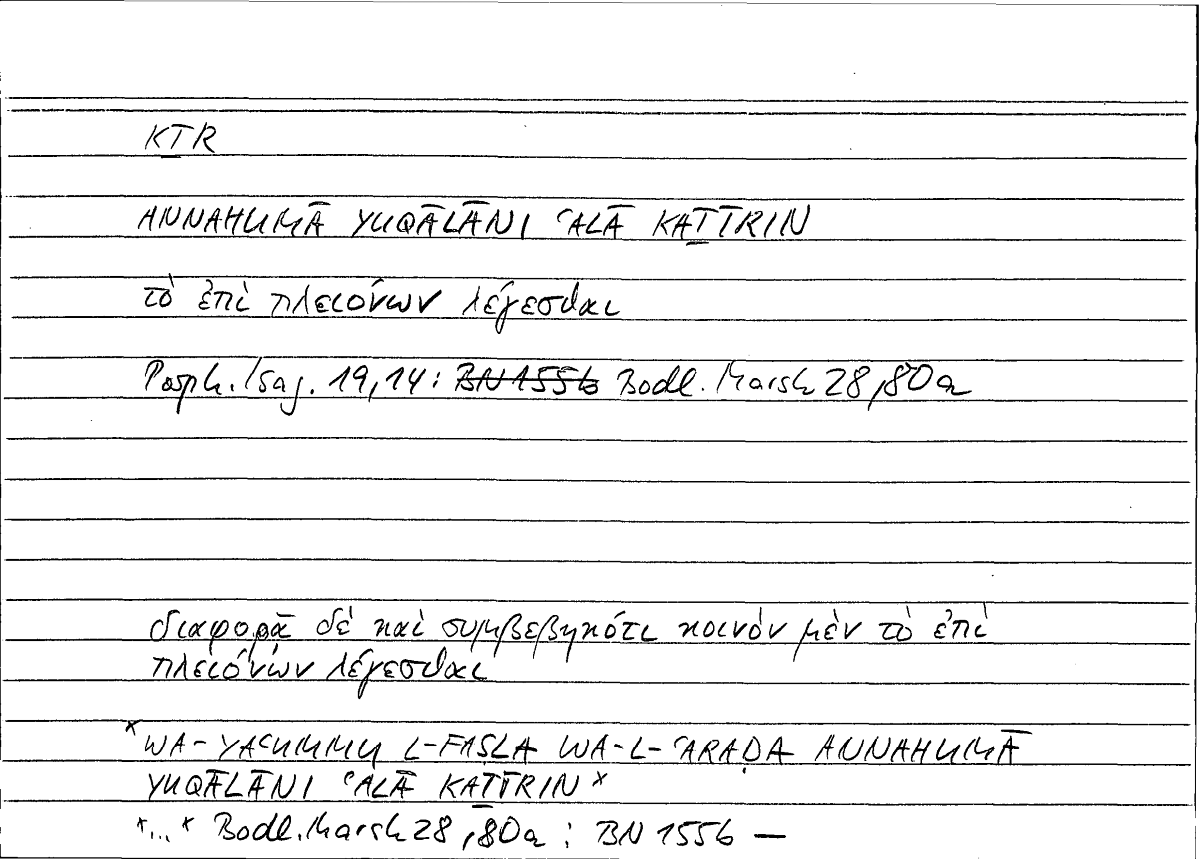 KṮR
ANNAHUMĀ YUQĀLĀNI ʿALĀ KAṮĪRIN
τὸ ἐπὶ πλειόνων λέγεσθαι
Porph. Isag. 19,14: ~~BN 1556~~ Bodl. Marsh 28, 80a
διαφορᾷ δὲ καὶ συμβεβηκότι κοινὸν μὲν τὸ ἐπὶ
πλειόνων λέγεσθαι
*WA-YAʿUMMU L-FAṢLA WA-L-ʿARAḌA ANNAHUMĀ
YUQĀLĀNI ʿALĀ KAṮĪRIN*
*...* Bodl. Marsh 28, 80a : BN 1556 —